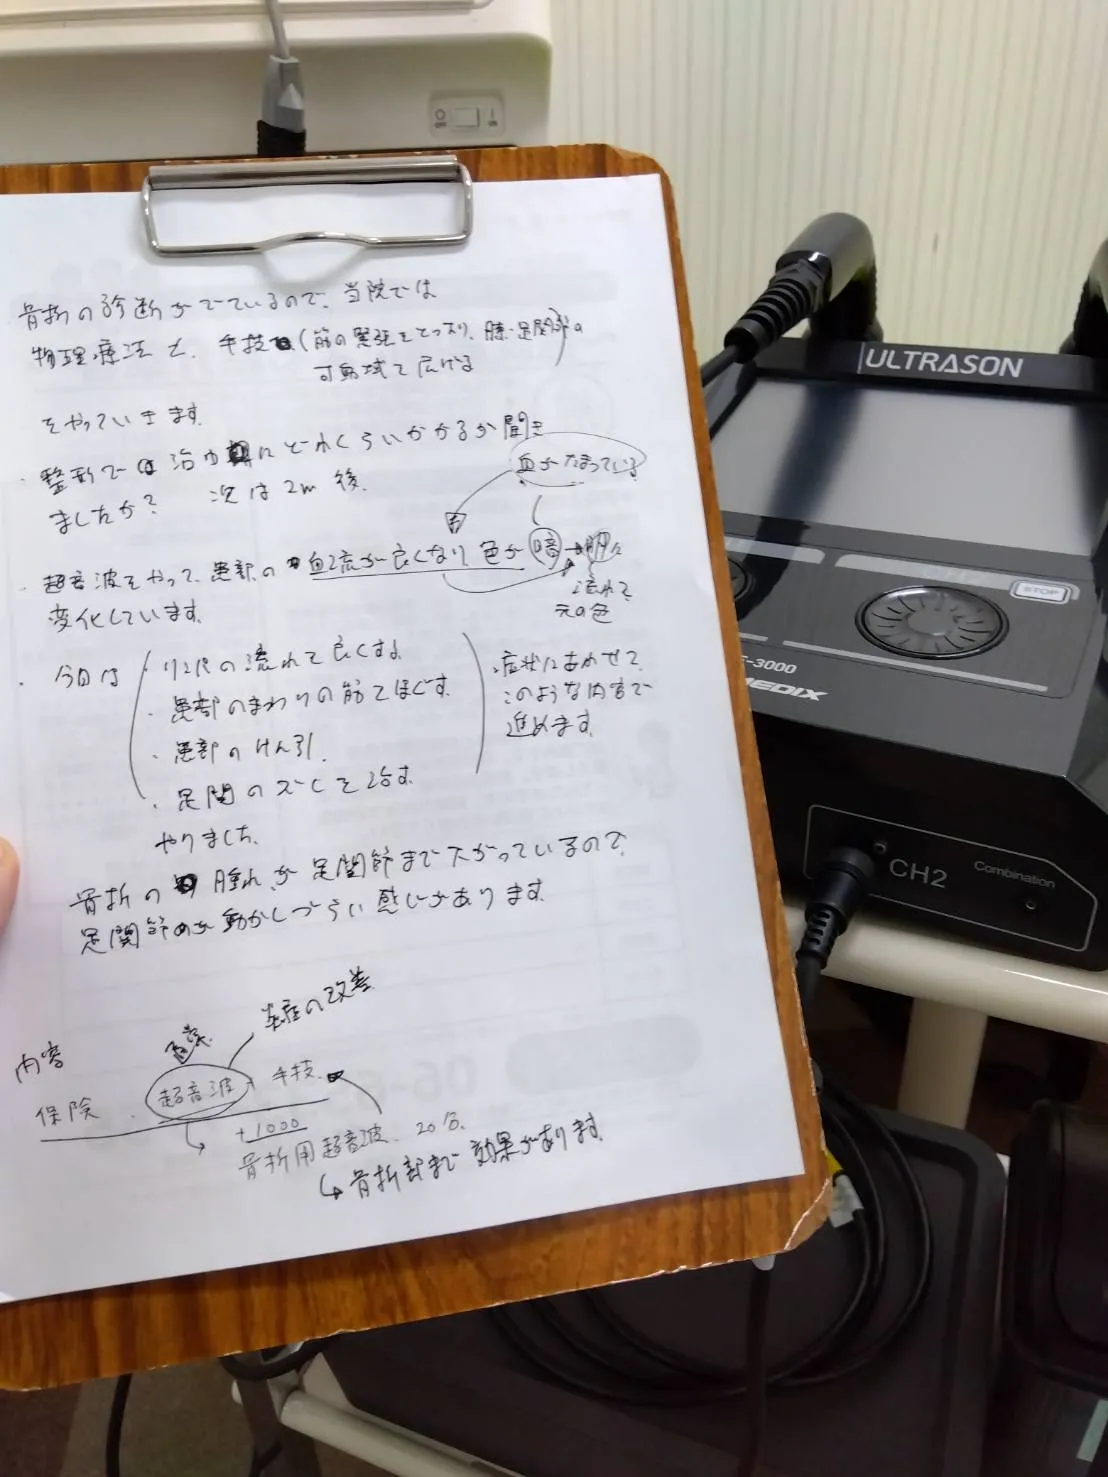 骨折の診断がでているので、当院では
物理療法と、手技(筋の緊張をとったり、膝・足関節の
可動域て広げる)
をやっていきます。
・整形では治ゆにどれくらいかかるか聞き
ましたか? 次は2m後。
血がたまっている
・超音波をやって、患部の血流が良くなり色が暗→明に
変化しています。
流れて
元の色
・今日は
・リンパの流れて良くする
・患部のまわりの筋てほぐす。
・患部のけん引。
・足関のズレを治す。
やりました。
症状にあわせて、
このような内容で
進めます。
骨折の腫れが足関節まで下がっているので、
足関節が動かしづらい感じがあります。
内容
炎症の改善
保険 超音波+手技
+1000
骨折用超音波、20分、
↳骨折部まで効果があります。
ULTRASON
STOP
-3000
MEDIX
CH2
Combination
OFF
ON